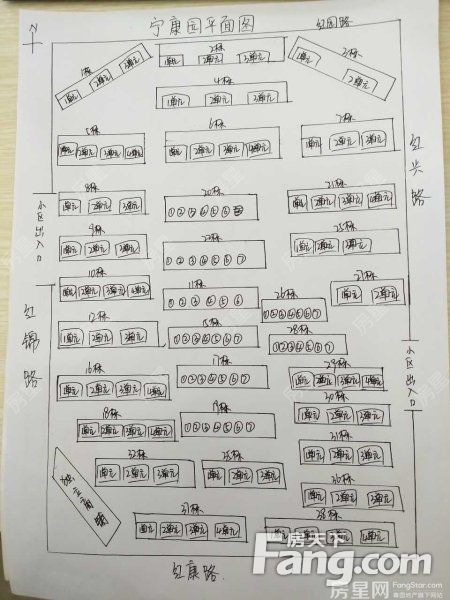 N
宁康园平面图
红园路
1栋
1单元 2单元 3单元
2栋
1单元 2单元 3单元
3栋
1单元 2单元
4栋
1单元 2单元 3单元
5栋
1单元 2单元 3单元 4单元
6栋
1单元 2单元 3单元 4单元
7栋
1单元 2单元 3单元
红兴路
8栋
1单元 2单元 3单元
20栋
①②③④⑤⑥⑦
21栋
1单元 2单元 3单元 4单元
小区出入口
9栋
1单元 2单元 3单元
22栋
①②③④⑤⑥⑦
25栋
1单元 2单元 3单元
10栋
1单元 2单元 3单元 4单元
11栋
①②③④⑤⑥
26栋
①②③④⑤⑥⑦
27栋
1单元 2单元
红锦路
12栋
1单元 2单元 3单元
15栋
①②③④⑤⑥⑦
28栋
①②③④⑤⑥⑦
小区出入口
16栋
1单元 2单元 3单元 4单元
17栋
①②③④⑤⑥⑦
29栋
1单元 2单元 3单元 4单元
30栋
1单元 2单元 3单元
18栋
1单元 2单元 3单元 4单元
19栋
①②③④⑤⑥⑦
31栋
1单元 2单元 3单元
32栋
1单元 2单元 3单元
35栋
1单元 2单元 3单元
36栋
1单元 2单元 3单元
独立商铺
37栋
1单元 2单元 3单元 4单元
38栋
1单元 2单元 3单元 4单元
红康路
房天下
Fang.com
房星网 FangStar.com
房天下